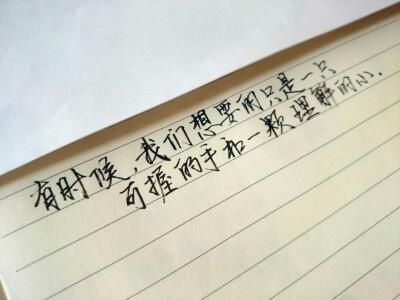 有时候,我们想要的只是一只
可握的手和一颗理解的心.